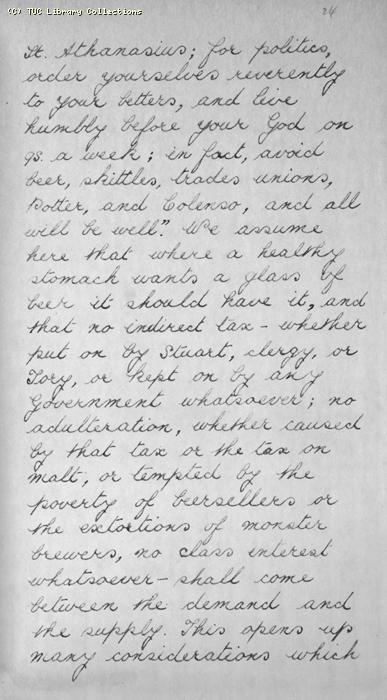 (C) TUC Library Collections
24
St. Athanasius; for politics,
order yourselves reverently
to your betters, and live
humbly before your God on
9s. a week; in fact, avoid
beer, skittles, trades unions,
Potter, and Colenso, and all
will be well". We assume
here that where a healthy
stomach wants a glass of
beer it should have it, and
that no indirect tax - whether
put on by Stuart, clergy, or
Tory, or kept on by any
Government whatsoever; no
adulteration, whether caused
by that tax or the tax on
malt, or tempted by the
poverty of beersellers or
the extortions of monster
brewers, no class interest
whatsoever - shall come
between the demand and
the supply. This opens up
many considerations which